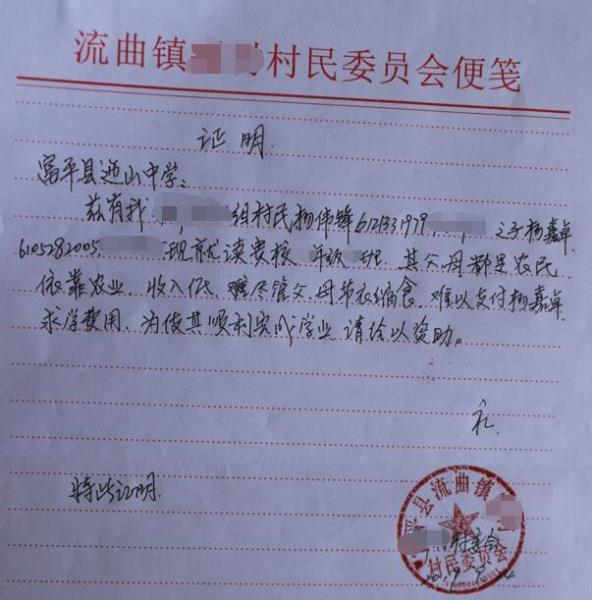 流曲镇 村民委员会便笺
证明.
富平县迤山中学:
兹有我 组村民杨伟锋612133.1979 之子杨嘉卓
6105282005 现就读贵校 年级 班. 其父母都是农民
依靠农业、收入低、难尽管父母节衣缩食、难以支付杨嘉卓
求学费用. 为使其顺利完成学业请给以资助。
礼.
特此证明.
平县流曲镇
村委会
村民委员会